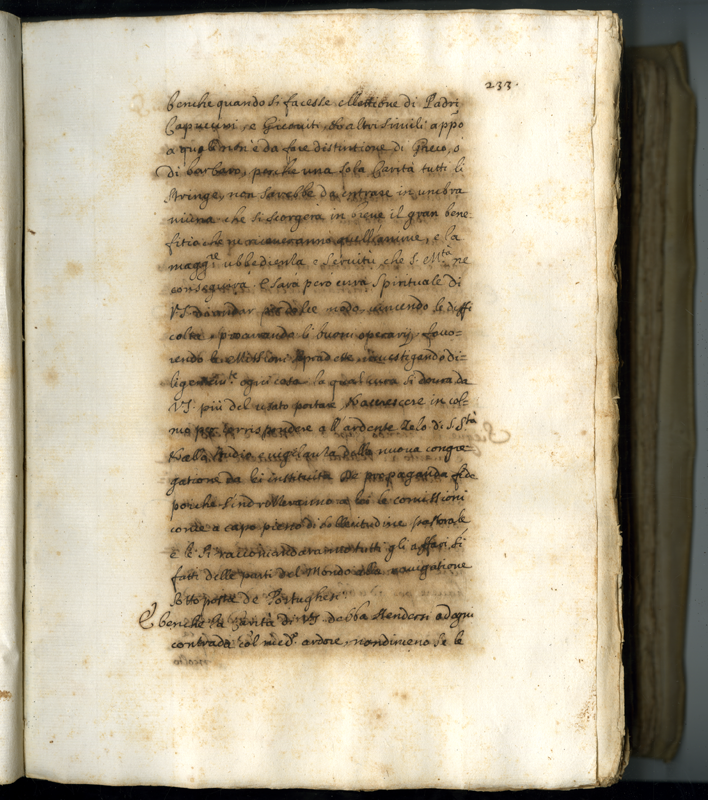 233.
benche quando si facesse elettione di Padri
Capucini, e Giesuiti, ò altri simili appò
a quali non è da fare distintione di Greco, ò
di barbaro, perche una sola Carità tutti li
stringe, non sarebbe da entrare in
niuna che si scorgerà in breve il gran bene
fitio che ne riceveranno quell'anime, e la
magg.re ubbedienza e servitù che S. M.tà ne
conseguirà. E sarà però cura spirituale di
VS. dà andar dolce modo vincendo le diffi
coltà procurando li buoni operarij, favo=
rendo le Missioni sopradette investigando di=
ligentem.te ogni cosa la qual cura si dovrà da
VS. più del usato portare accrescere in col=
mo per corrispondere all'ardente Zelo di S. S.tà
studio e vigilanza della nuova congre=
gatione da lei instituita de propaganda fide
perche si indrizzeranno a lei le comissioni
come a capo pieno di sollecitudine pastorale
e le si raccomandaranno tutti gli affari si
fatti delle parti del Mondo alla navigatione
sottoposte de Portughesi.
E benche la carità di VS. debba stendersi ad ogni
contrada col med.o ardore, nondimeno se le